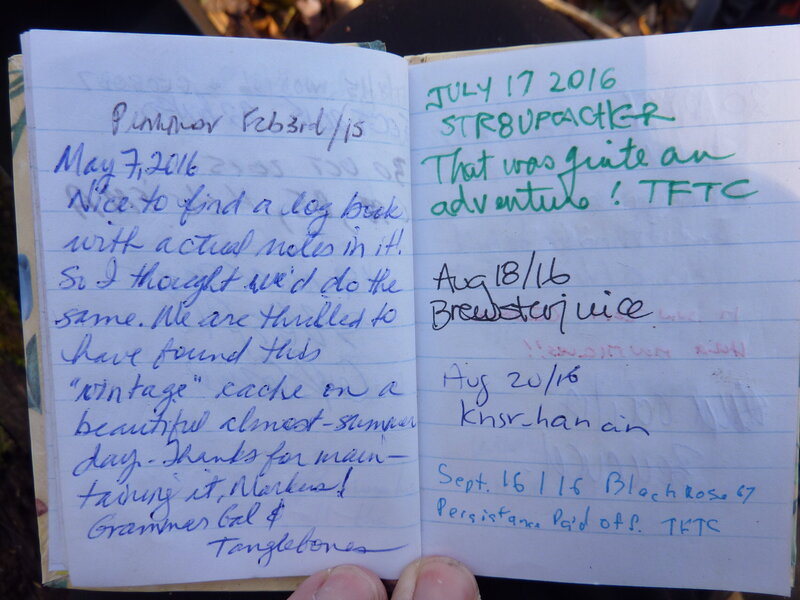 Feb 3rd/15
May 7, 2016
Nice to find a log book
with actual notes in it!
So I thought we'd do the
same. We are thrilled to
have found this
"vintage" cache on a
beautiful almost-summer
day. Thanks for main-
taining it, Markus!
Grammer Gal &
Tanglebones
JULY 17 2016
STR8UPCACHER
That was quite an
adventure! TFTC
Aug 18/16
Brewsterjuice
Aug 20/16
Sept. 16/16 BlackRose67
Persistance Paid off. TFTC